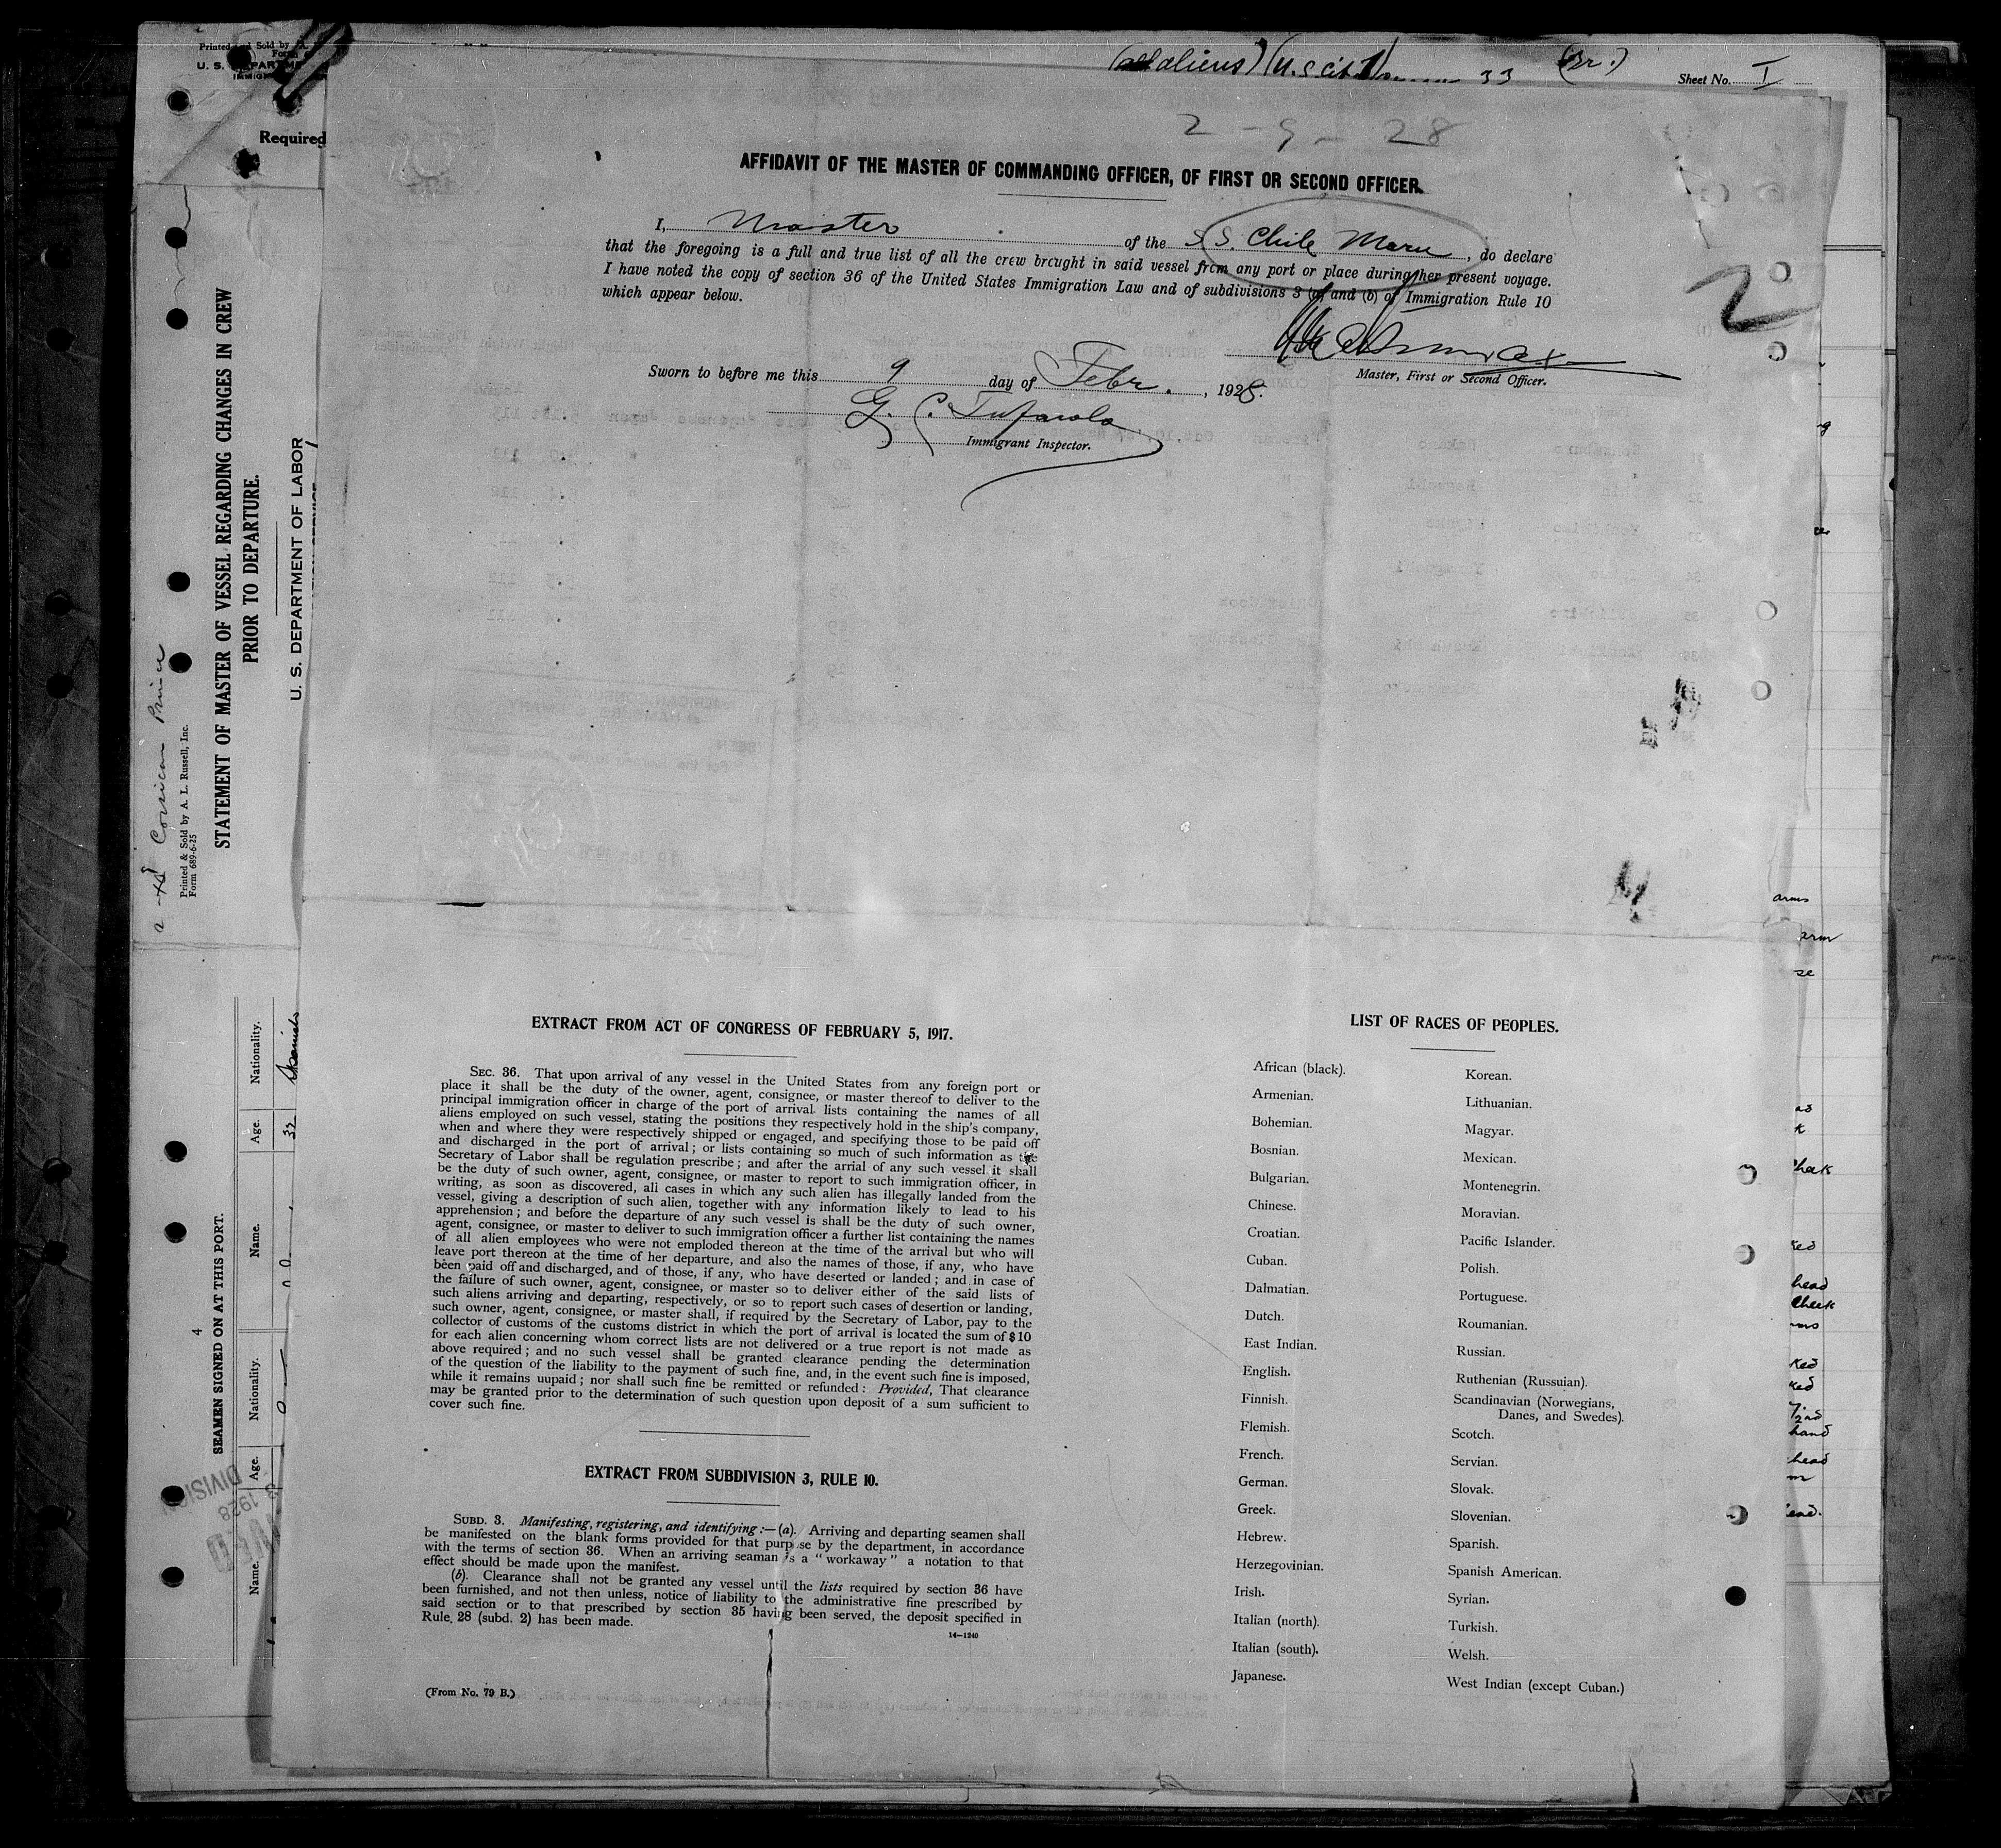 Printed and Sold by A.
U. S. DEPARTME
IMMIG
Required
(all aliens) (U.S cit 1) 33 (Br.)
Sheet No. I
2 - 9 - 28
AFFIDAVIT OF THE MASTER OF COMMANDING OFFICER, OF FIRST OR SECOND OFFICER.
I, Master of the S.S. Chile Maru, do declare
that the foregoing is a full and true list of all the crew brought in said vessel from any port or place during her present voyage.
I have noted the copy of section 36 of the United States Immigration Law and of subdivisions 3 (a) and (b) of Immigration Rule 10
which appear below.
2
Master, First or Second Officer.
Sworn to before me this 9 day of Febr., 1928.
G. C.
Immigrant Inspector.
STATEMENT OF MASTER OF VESSEL REGARDING CHANGES IN CREW
PRIOR TO DEPARTURE.
U. S. DEPARTMENT OF LABOR
Corsican Prince
Printed & Sold by A. L. Russell, Inc.
Form 689-6-25
4
SEAMEN SIGNED ON AT THIS PORT.
Name. Age. Nationality. Name. Age. Nationality.
32
DIVISIO
1928
EXTRACT FROM ACT OF CONGRESS OF FEBRUARY 5, 1917.
SEC. 36. That upon arrival of any vessel in the United States from any foreign port or
place it shall be the duty of the owner, agent, consignee, or master thereof to deliver to the
principal immigration officer in charge of the port of arrival lists containing the names of all
aliens employed on such vessel, stating the positions they respectively hold in the ship's company,
when and where they were respectively shipped or engaged, and specifying those to be paid off
and discharged in the port of arrival; or lists containing so much of such information as the
Secretary of Labor shall be regulation prescribe; and after the arrial of any such vessel it shall
be the duty of such owner, agent, consignee, or master to report to such immigration officer, in
writing, as soon as discovered, all cases in which any such alien has illegally landed from the
vessel, giving a description of such alien, together with any information likely to lead to his
apprehension; and before the departure of any such vessel is shall be the duty of such owner,
agent, consignee, or master to deliver to such immigration officer a further list containing the names
of all alien employees who were not emploded thereon at the time of the arrival but who will
leave port thereon at the time of her departure, and also the names of those, if any, who have
been paid off and discharged, and of those, if any, who have deserted or landed; and in case of
the failure of such owner, agent, consignee, or master so to deliver either of the said lists of
such aliens arriving and departing, respectively, or so to report such cases of desertion or landing,
such owner, agent, consignee, or master shall, if required by the Secretary of Labor, pay to the
collector of customs of the customs district in which the port of arrival is located the sum of $10
for each alien concerning whom correct lists are not delivered or a true report is not made as
above required; and no such vessel shall be granted clearance pending the determination
of the question of the liability to the payment of such fine, and, in the event such fine is imposed,
while it remains uupaid; nor shall such fine be remitted or refunded: Provided, That clearance
may be granted prior to the determination of such question upon deposit of a sum sufficient to
cover such fine.
EXTRACT FROM SUBDIVISION 3, RULE 10.
SUBD. 3. Manifesting, registering, and identifying:—(a). Arriving and departing seamen shall
be manifested on the blank forms provided for that purpose by the department, in accordance
with the terms of section 36. When an arriving seaman is a "workaway" a notation to that
effect should be made upon the manifest.
(b). Clearance shall not be granted any vessel until the lists required by section 36 have
been furnished, and not then unless, notice of liability to the administrative fine prescribed by
said section or to that prescribed by section 35 having been served, the deposit specified in
Rule. 28 (subd. 2) has been made.
14—1240
(From No. 79 B.)
LIST OF RACES OF PEOPLES.
African (black).
Armenian.
Bohemian.
Bosnian.
Bulgarian.
Chinese.
Croatian.
Cuban.
Dalmatian.
Dutch.
East Indian.
English.
Finnish.
Flemish.
French.
German.
Greek.
Hebrew.
Herzegovinian.
Irish.
Italian (north).
Italian (south).
Japanese.
Korean.
Lithuanian.
Magyar.
Mexican.
Montenegrin.
Moravian.
Pacific Islander.
Polish.
Portuguese.
Roumanian.
Russian.
Ruthenian (Russuian).
Scandinavian (Norwegians,
Danes, and Swedes).
Scotch.
Servian.
Slovak.
Slovenian.
Spanish.
Spanish American.
Syrian.
Turkish.
Welsh.
West Indian (except Cuban.)
arms
arm
head
cheek
hand
head